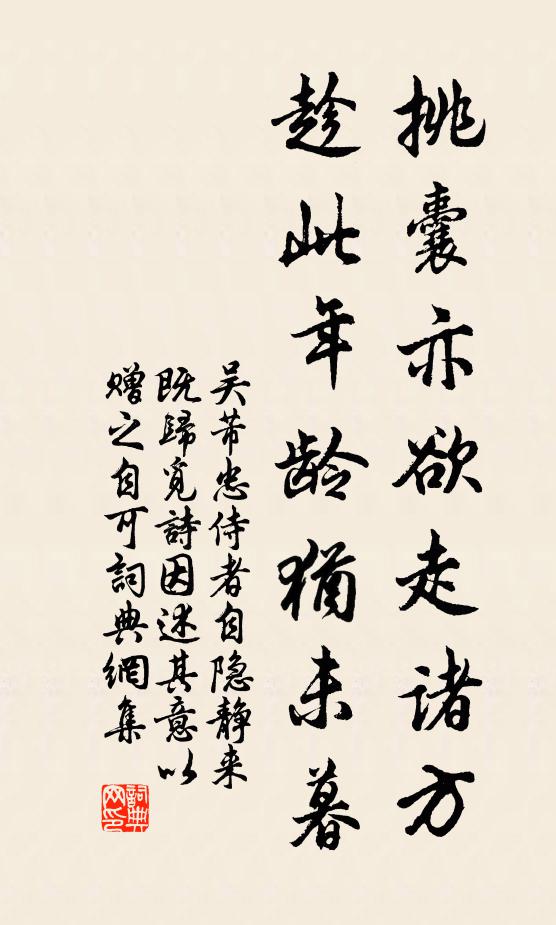 挑囊亦欲走诸方
趁此年龄猶未暮
吴芾忠侍者自隐静来
既歸覓詩因述其意以
赠之自可詞典網集
詞典网印